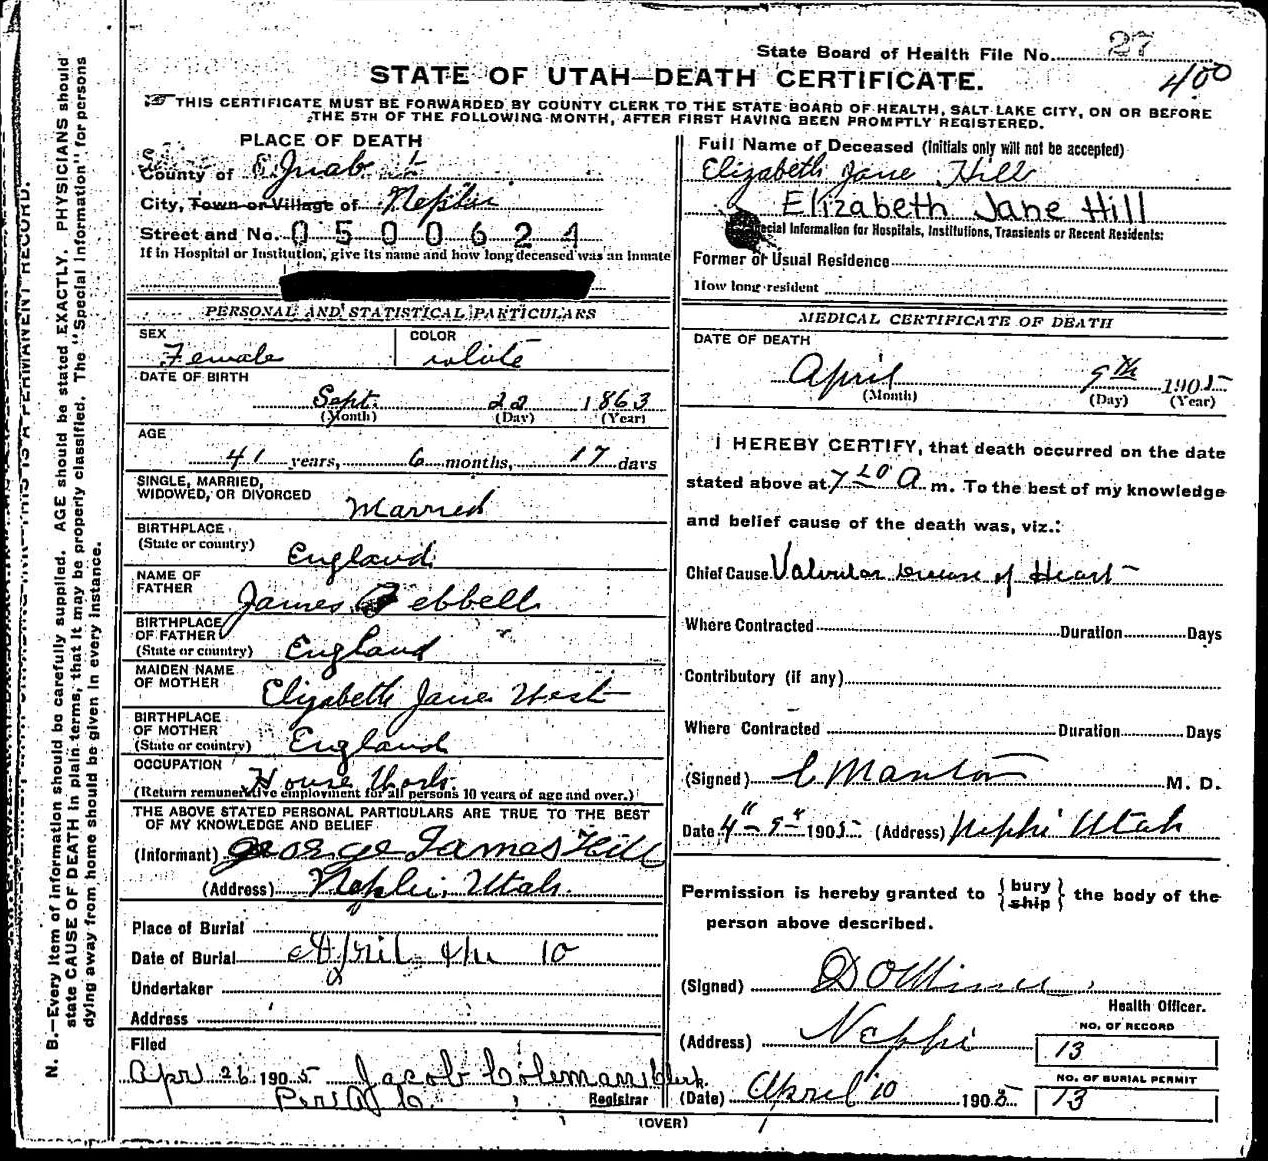 State Board of Health File No. 27
400
STATE OF UTAH—DEATH CERTIFICATE.
THIS CERTIFICATE MUST BE FORWARDED BY COUNTY CLERK TO THE STATE BOARD OF HEALTH, SALT LAKE CITY, ON OR BEFORE
THE 5TH OF THE FOLLOWING MONTH, AFTER FIRST HAVING BEEN PROMPTLY REGISTERED.
PLACE OF DEATH
County of Juab
City, Town or Village of Nephi
Street and No. 0500624
If in Hospital or Institution, give its name and how long deceased was an inmate
PERSONAL AND STATISTICAL PARTICULARS
SEX Female COLOR white
DATE OF BIRTH
Sept. 22 1863
(Month) (Day) (Year)
AGE
41 years, 6 months, 17 days
SINGLE, MARRIED,
WIDOWED, OR DIVORCED Married
BIRTHPLACE
(State or country) England
NAME OF
FATHER James Bebbell
BIRTHPLACE
OF FATHER
(State or country) England
MAIDEN NAME
OF MOTHER Elizabeth Jane West
BIRTHPLACE
OF MOTHER
(State or country) England
OCCUPATION House Work
(Return remunerative employment for all persons 10 years of age and over.)
THE ABOVE STATED PERSONAL PARTICULARS ARE TRUE TO THE BEST
OF MY KNOWLEDGE AND BELIEF
(Informant) George James Hill
(Address) Nephi, Utah.
Place of Burial
Date of Burial April the 10
Undertaker
Address
Filed
Apr 26 1905 Jacob Coleman Clerk.
Per
Registrar
(OVER)
Full Name of Deceased (Initials only will not be accepted)
Elizabeth Jane Hill
Elizabeth Jane Hill
Special Information for Hospitals, Institutions, Transients or Recent Residents:
Former or Usual Residence
How long resident
MEDICAL CERTIFICATE OF DEATH
DATE OF DEATH
April 9th 1905
(Month) (Day) (Year)
I HEREBY CERTIFY, that death occurred on the date
stated above at 7 A m. To the best of my knowledge
and belief cause of the death was, viz.:
Chief Cause Valvular Disease of Heart
Where Contracted Duration Days
Contributory (if any)
Where Contracted Duration Days
(Signed) M. D.
Date 4" 9" 1905 (Address) Nephi Utah
Permission is hereby granted to bury
ship the body of the
person above described.
(Signed)
Health Officer.
(Address) Nephi
(Date) April 10 1905
NO. OF RECORD
13
NO. OF BURIAL PERMIT
13
N. B.—Every item of information should be carefully supplied. AGE should be stated EXACTLY. PHYSICIANS should
state CAUSE OF DEATH in plain terms, that it may be properly classified. The "Special Information" for persons
dying away from home should be given in every instance.